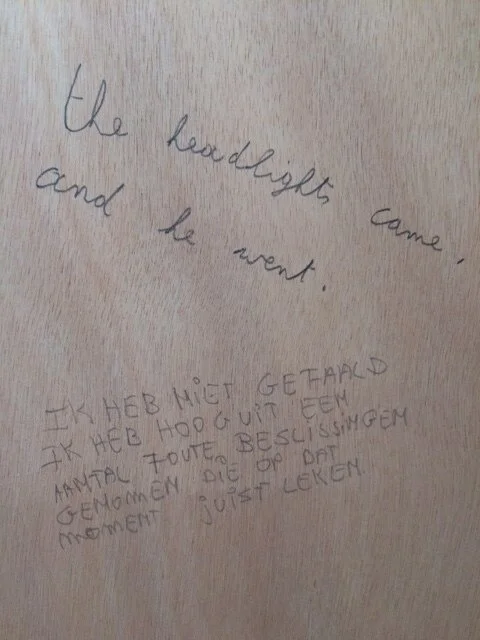 the headlights came,
and he went.
IK HEB NIET GEFAALD
IK HEB HOOGUIT EEN
AANTAL FOUTE BESLISSINGEN
GENOMEN DIE OP DAT
MOMENT JUIST LEKEN